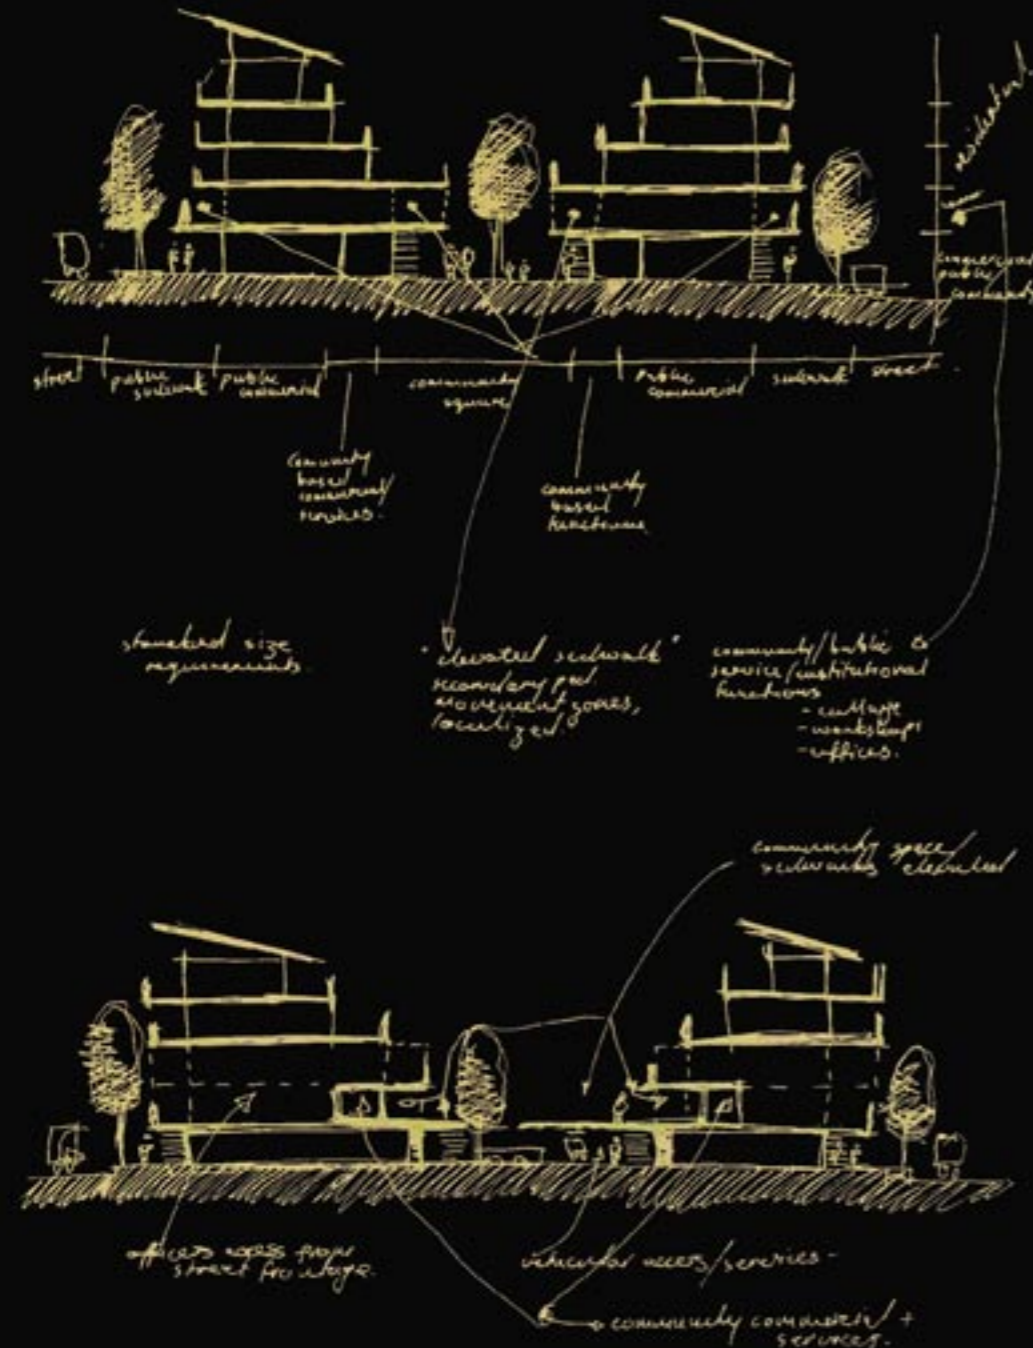 residential
commercial
public
community
street
public
sidewalk
public
commercial
community
square
public
commercial
sidewalk
street
community
based
commercial/
services.
community
based
functions
standard size
requirements.
"elevated sidewalk"
secondary ped
movement zones,
localized.
community/public
service/institutional
functions
-
- workshops
- offices.
community space/
sidewalks elevated
offices access from
street frontage.
vehicular access/services -
community commercial +
services.